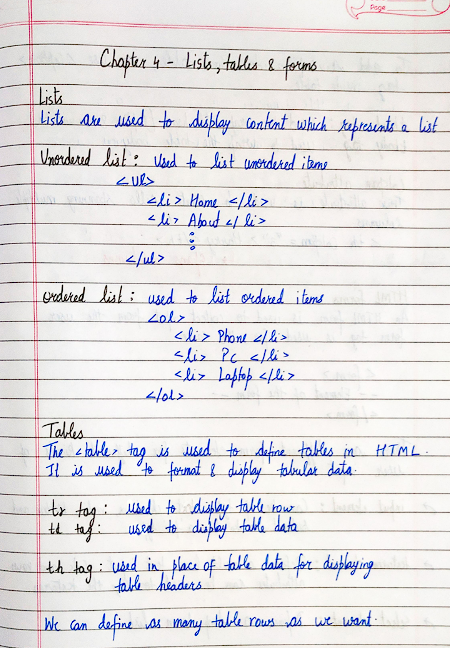 Page
Chapter 4 - Lists, tables & forms
Lists
Lists are used to display content which represents a list
Unordered list : Used to list unordered items
<ul>
<li> Home </li>
<li> About </li>
</ul>
ordered list : used to list ordered items
<ol>
<li> Phone </li>
<li> PC </li>
<li> Laptop </li>
</ol>
Tables
The <table> tag is used to define tables in HTML.
It is used to format & display tabular data.
tr tag : used to display table row
td tag : used to display table data
th tag : used in place of table data for displaying
table headers
We can define as many table rows as we want.